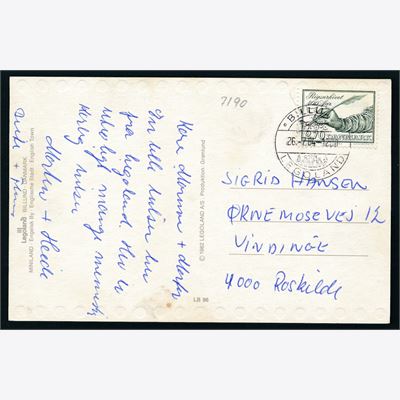 7190
Kære Mormor + Morfar
En lille hilsen her
fra Legoland. Her er
utroligt mange mennesker
Kærlig hilsen
Morten + Heidi
III
Legoland BILLUND DANMARK
MINILAND: Engelsk By · Englische Stadt · English Town
© 1982 LEGOLAND A/S · Production: Grønlund
LB 96
Rigsarkivet
DANMARK
BILLUND
LEGOLAND
SIGRID HANSEN
ØRNEMOSEVEJ 12
VINDINGE
4000 Roskilde